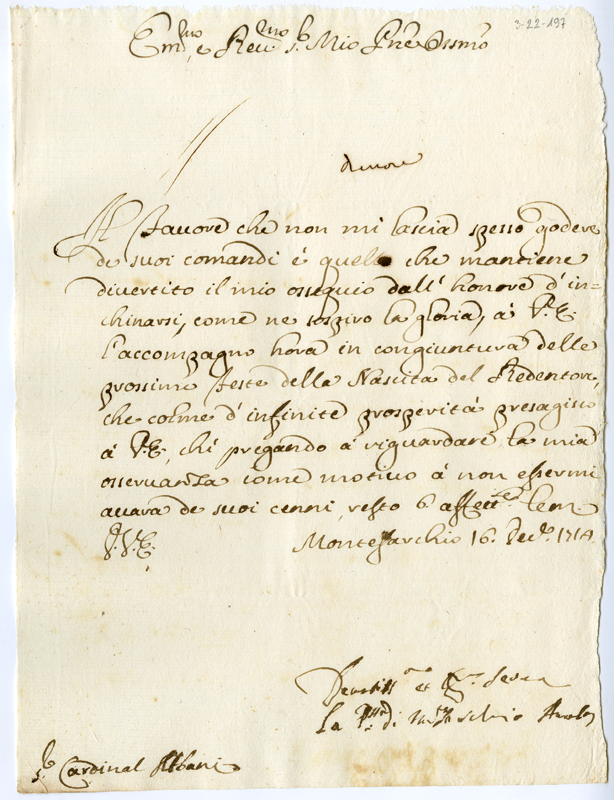 3-22-197
Em.mo e Rev.mo S.r Mio Pne Ossmo
Il favore che non mi lascia spesso godere
de suoi comandi é quello che mantiene
divertito il mio ossequio dall' honore d' in=
chinarsi, come ne sospiro la gloria, á V.E.
l'accompagno hora in congiuntura delle
prossime feste della Nascita del Redentore,
che colme d' infinite prosperitá presagisco
á V.E., ché pregando á riguardare la mia
osservanza come motivo á non essermi
avara de suoi cenni, resto
V.E. Montesarchio 16. Dec.e 1714.
La P.ssa di
S.r Cardinal Albani